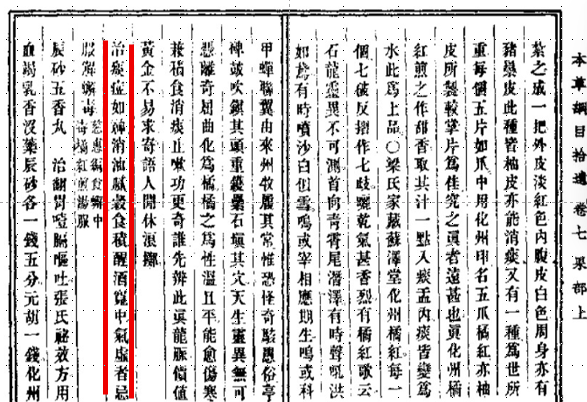 本草綱目拾遺 卷七 果部上
紮之成一把外皮淡紅色內腹皮白色周身亦有
豬鬃皮此種皆柚皮亦能消痰又有一種爲世所
重每個五片如爪中用化州印名五爪橘紅亦柚
皮所製較掌片爲佳究之眞者遠甚也眞化州橘
紅煎之作甜香取其汁一點入痰盂內痰皆變爲
水此爲上品○梁氏家藏蘇澤堂化州橘紅每一
個七破反摺作七歧曬乾氣甚香烈有橘紅歌云
石龍靈異不可測首向青霄尾潛澤有時聲吼洪
如鳶有時噴沙白似雪鳴或宰相應期生鳴或科
甲蟬聯翼由來州牧履其常惟恐怪奇駭愚俗亭
稗鼓吹鎮其頭重
石填其穴天生靈異無可
憑離奇屈曲化爲橘橘之爲性溫且平能愈傷寒
兼積食消痰止嗽功更奇誰先辨此眞龍脈價値
黃金不易求寄語人間休浪擲
治痰症如神消油膩穀食積醒酒寬中氣虛者忌
服解蟹毒 慈惠編食蟹中毒橘紅煎湯服
辰砂五香丸 治翻胃噎膈嘔吐張氏祕效方用
血竭乳香沒藥辰砂各一錢五分元胡一錢化州